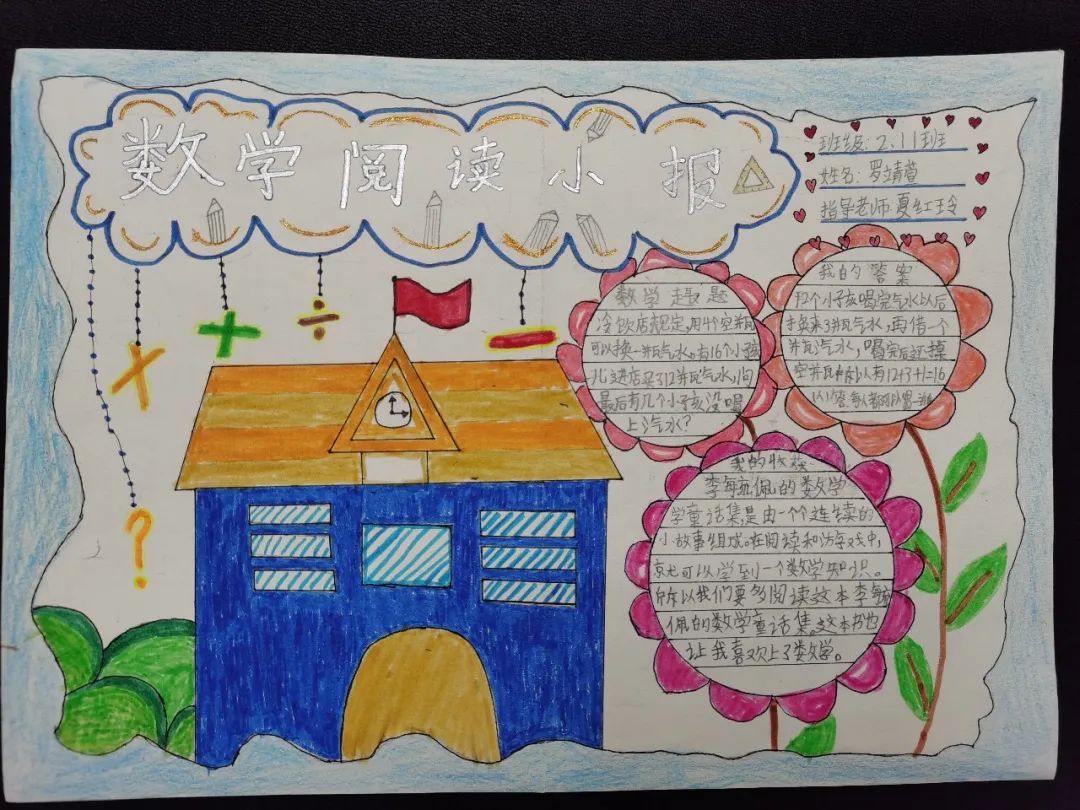 数学阅读小报
班级:2、11班
姓名:罗靖萱
指导老师:夏红玲
数学趣题
冷饮店规定,用4个空瓶
可以换一瓶气水。有16个小孩
儿进店买了12瓶气水,问
最后有几个小孩没喝
上汽水?
我的答案
12个小孩喝完气水以后
换来3瓶气水,再借一个
瓶汽水,喝完后还掉
空瓶所以有12+3+1=16
(人)答:每人都可以喝一瓶
我的收获
李毓佩的数学
学童话集,是由一个个连续的
小故事组成。在阅读和游戏中,
就可以学到一个数学知识。
所以我们要多阅读这本李毓
佩的数学童话集。这本书也
让我喜欢上了数学。
+
÷
−
×
?